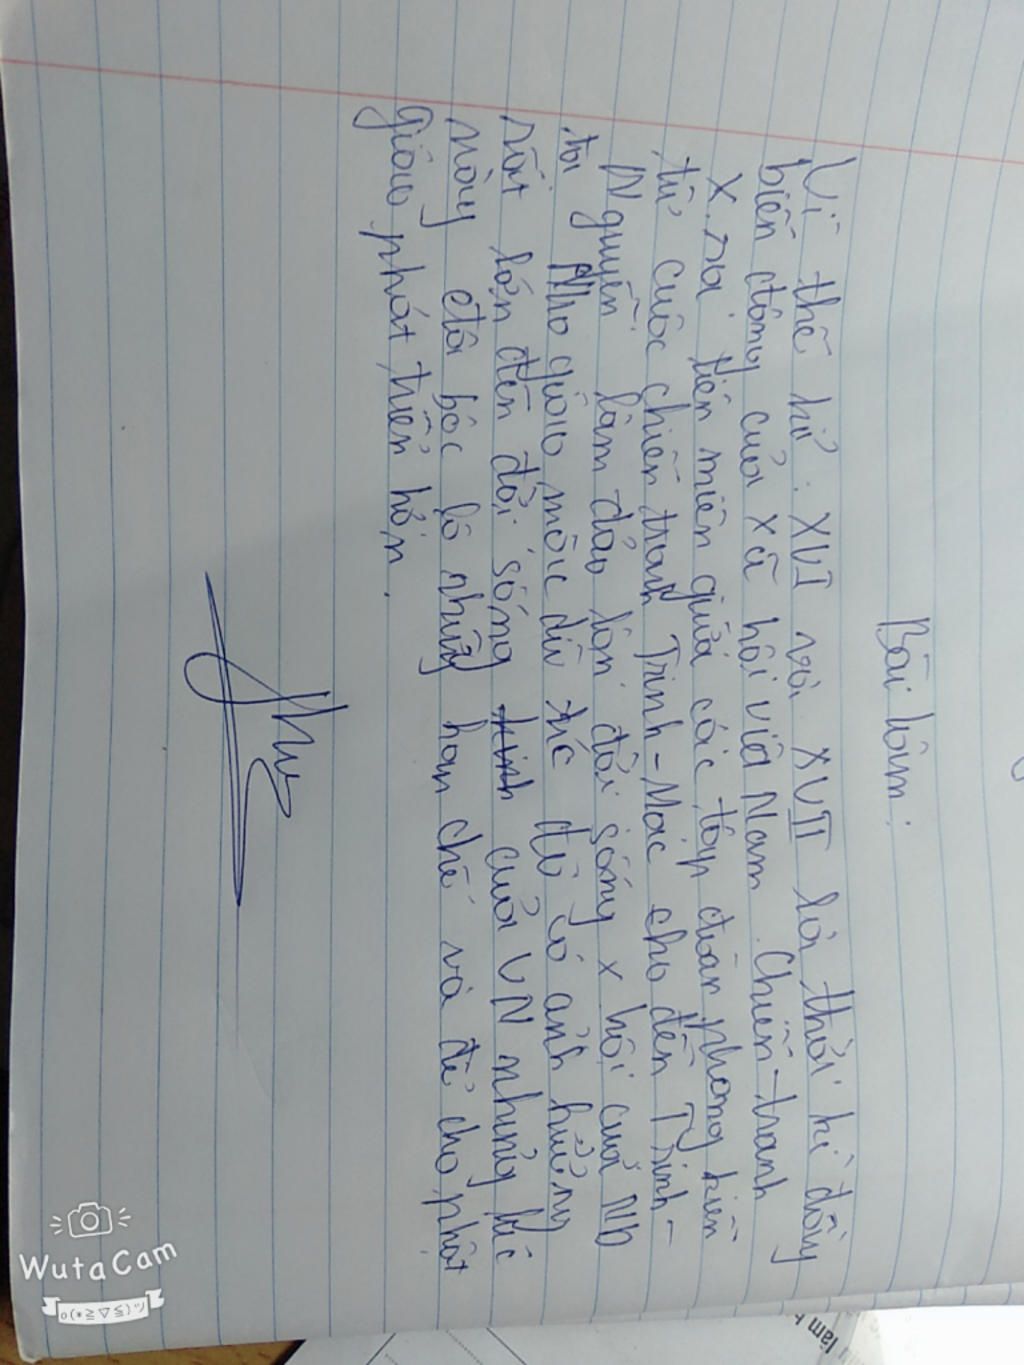 Bài làm:
Vì thế kỉ: XVI và XVII là thời kì đầy
biến động của xã hội việt Nam. Chiến-tranh
x.ra liên miên giữa các tập đoàn phong kiến
từ cuộc chiến tranh Trịnh-Mạc cho đến Trịnh-
Nguyễn làm đảo lộn đời sống x hội của ND
ta Nho giáo mặc dù đã có ảnh hưởng
rất lớn đến đời sống của VN nhưng lúc
này đã bộc lộ những hạn chế và để cho phật
giáo phát triển hơn.
WutaCam
o(*≧▽≦)ツ
làm b